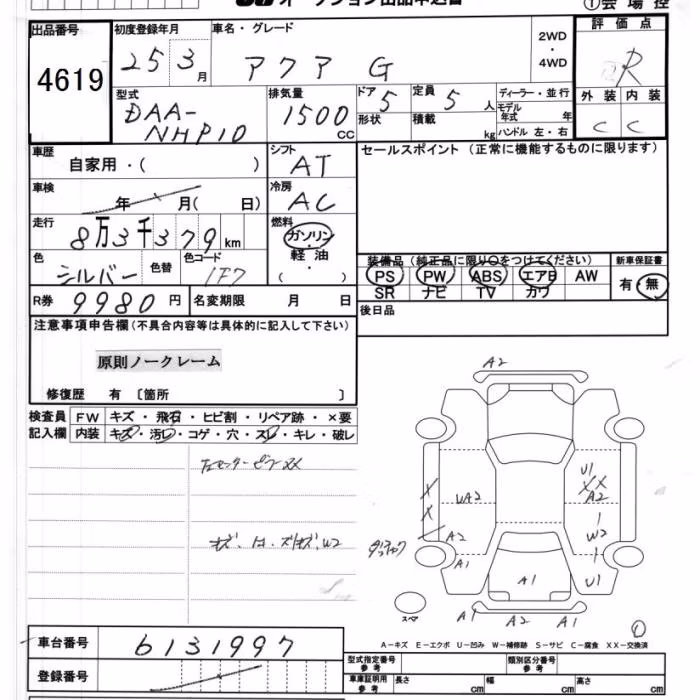 オークション出品申込書
①会場控
出品番号
4619
初度登録年月
25 3月
車名・グレード
アクア G
2WD
・
4WD
評価点
R
型式
DAA-
NHP10
排気量
1500
CC
ドア 5
形状
定員 5 人
積載 kg
ディーラー・並行
モデル
年式 年
ハンドル 左・右
外装 内装
C C
車歴
自家用・( )
シフト
AT
セールスポイント (正常に機能するものに限ります)
車検
年 月( 日)
冷房
AC
走行
8万3千379km
燃料
ガソリン
・
軽油
・
( )
色
シルバー
色替
色コード
1F7
装備品 (純正品に限り○をつけてください)
PS PW ABS エアB AW
SR ナビ TV カワ
新車保証書
有・無
R券 9980円
名変期限 月 日
後日品
注意事項申告欄 (不具合内容等は具体的に記入して下さい)
原則ノークレーム
修復歴 有 〔箇所 〕
検査員 FW キズ・飛石・ヒビ割・リペア跡・×要
記入欄 内装 キズ・汚レ・コゲ・穴・スレ・キレ・破レ
A2
U1
XX
A2
X
X
UA2
W2
A2
A1
A1
U1
A1 A2 A1
スペア
①
A-キズ E-エクボ U-凹み W-補修跡 S-サビ C-腐食 XX-交換済
車台番号 6131997
登録番号
型式指定番号
参考
類別区分番号
参考
車庫証明用
参考
長さ cm 幅 cm 高さ cm